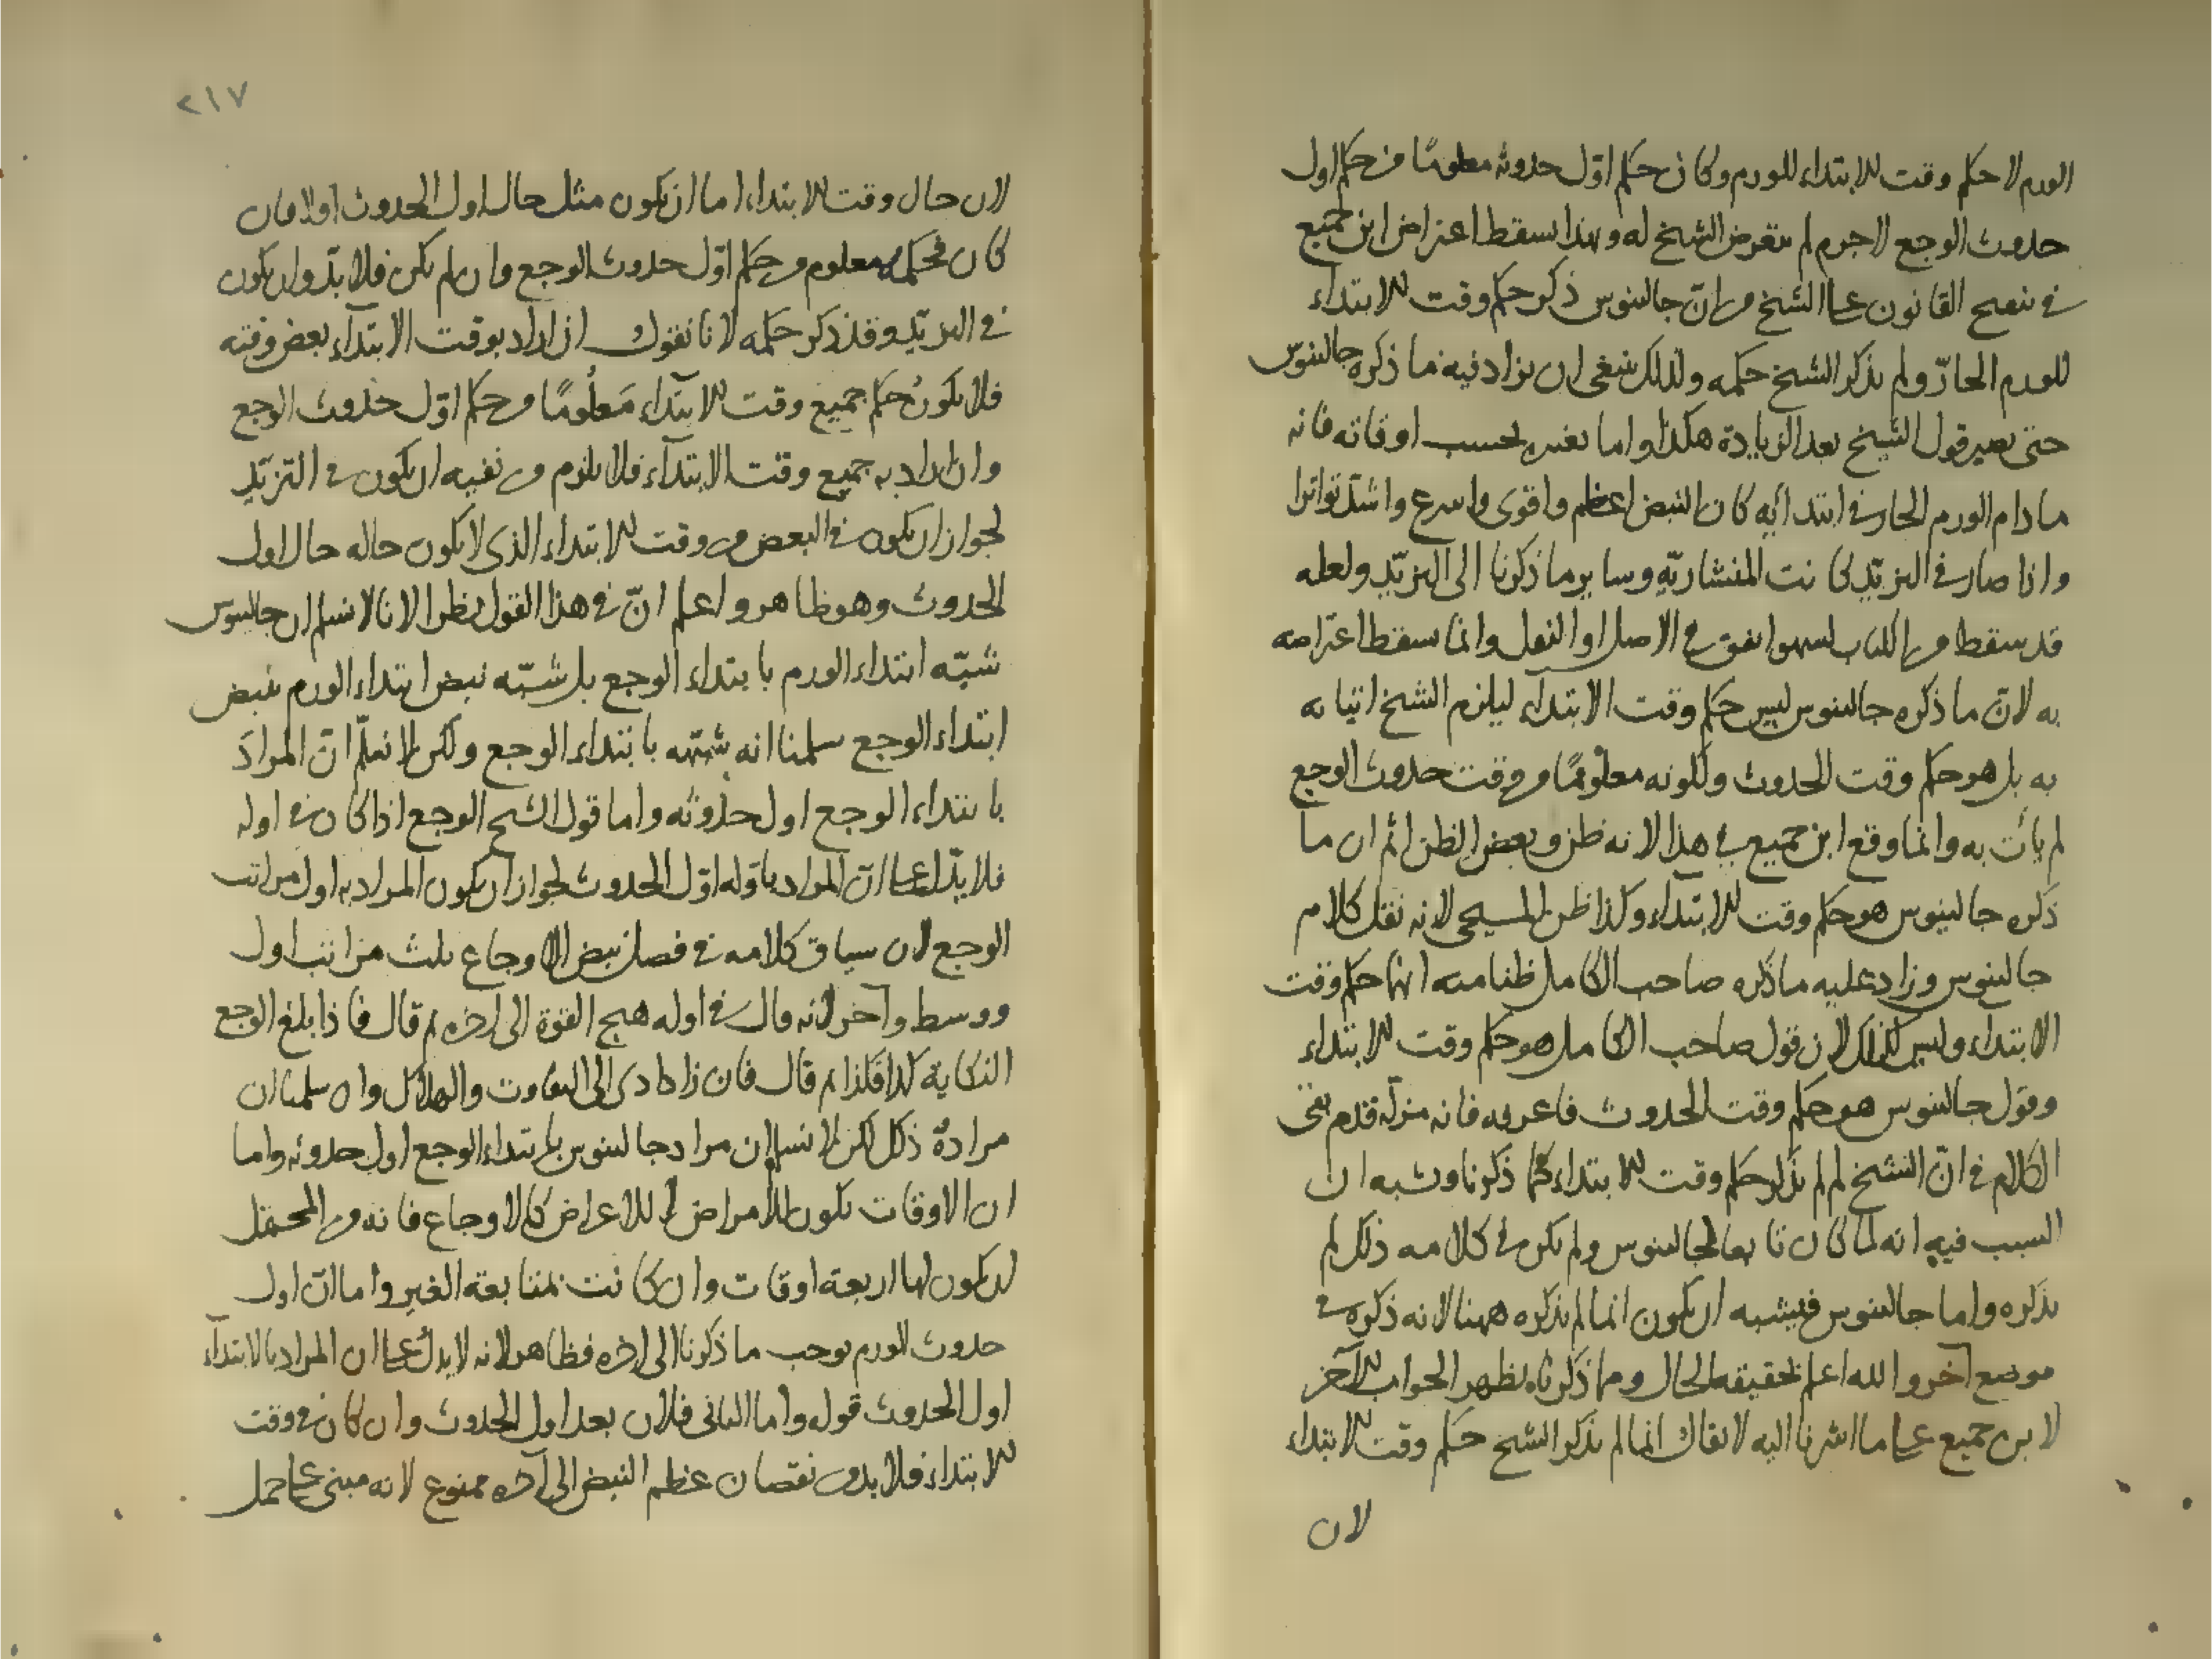 الورم لا حكم وقت الابتداء للورم وكان حكم اول حدوثه معلومًا من حكم اول
حدوث الوجع لاجرم لم يتعرض الشيخ له وبهذا يسقط اعتراض ابن جميع
في تنقيح القانون على الشيخ من انّ جالينوس ذكر حكم وقت الابتداء
للورم الحارّ ولم يذكر الشيخ حكمه ولذلك ينبغى ان يزاد فيه ما ذكره جالينوس
حتى يصير قول الشيخ بعد الزيادة هكذا واما تغيره بحسب اوقاته فانه
مادام الورم الحار في ابتدائه كان النبض اعظم واقوى واسرع واشد تواترا
واذا صار في التزيّد كانت المنشاريّه وساير ما ذكرنا الى التزيّد ولعله
قد سقط من الكتاب لسهو اتفق في الاصل او النقل وانما سقط اعتراضه
به لانّ ما ذكره جالينوس ليس حكم وقت الابتدآء ليلزم الشيخ اتيانه
به بل هو حكم وقت الحدوث ولكونه معلومًا من وقت حدوث الوجع
لم يأت به وانما وقع ابن جميع في هذا لانه ظن وبعض الظن اثم ان ما
ذكره جالينوس هو حكم وقت الابتداء وكذا ظن المسيحى لانه نقل كلام
جالينوس وزاد عليه ما ذكره صاحب الكامل ظنا منه انهما حكم وقت
الابتداء وليس كذلك لان قول صاحب الكامل هو حكم وقت الابتداء
وقول جالينوس هو حكم وقت الحدوث فاعرفه فانه مزلّه قدم بقى
الكلام في انّ الشيخ لم لم يذكر حكم وقت الابتداء كما ذكرنا ويشبه ان
السبب فيه انه لما كان تابعا لجالينوس ولم يكن في كلامه ذلك لم
يذكره واما جالينوس فيشبه ان يكون انما لم يذكره ههنا لانه ذكره في
موضع آخر والله اعلم بحقيقه الحال ومما ذكرناه يظهر الجواب الآخر
لابن جميع على ما اشرنا اليه لا يقال انما لم يذكر الشيخ حكم وقت الابتداء
لان
٢١٧
لان حال وقت الابتداء اما ان يكون مثل حال اول الحدوث اولا فان
كان فحكمه معلوم من حكم اوّل حدوث الوجع وان لم يكن فلابدّ وان يكون
في التزيّد وقد ذكر حكمه لانا نقول ان اراد بوقت الابتدآء بعض وقته
فلا يكون حكم جميع وقت الابتدآء مَعلُومًا من حكم اوّل حدوث الوجع
وان اراد به جميع وقت الابتدآء فلا يلزم من نفيه ان يكون في التزيّد
لجواز ان يكون في البعض من وقت الابتداء الذى لا يكون حاله حال اول
الحدوث وهو ظاهر واعلم انّ في هذا القول نظرا لانا لا نسلم ان جالينوس
شبّه ابتداء الورم بابتداء الوجع بل شبّه نبض ابتداء الورم بنبض
ابتداء الوجع سلمنا انه شبّهه بابتداء الوجع ولكن لا نعلّم انّ المرادَ
بابتداء الوجع اول حدوثه واما قول الشيخ الوجع اذا كان في اوله
فلا يدّل على انّ المراد باوّله اوّل الحدوث لجواز ان يكون المراد به اول مراتب
الوجع لان سياق كلامه في فصل نبض الاوجاع ثلث مراتب اول
ووسط وآخر لانه قال في اوله هيج القوّة الى اخره ثم قال فاذا بلغ الوجع
النكاية كذا فكذا ثم قال فان زاد ادى الى التفاوت والهلاك وان سلمنا ان
مراده ذلك لكن لا نسلم ان مراد جالينوس بابتداء الوجع اول حدوثه واما
ان الاوقات تكون للامراض لا للاعراض كالاوجاع فانه من المحتمل
ان يكون لها اربعة اوقات وان كانت متابعة الغير واما انّ اول
حدوث الورم يوجب ما ذكرنا الى اخره فظاهر لانه لا يدلُ على ان المراد بالابتدآء
اول الحدوث قوله واما الثانى فلان بعد اول الحدوث وان كان في وقت
الابتداء فلابد من نقصان عظم النبض الى آخره ممنوع لانه مبنى على حمل